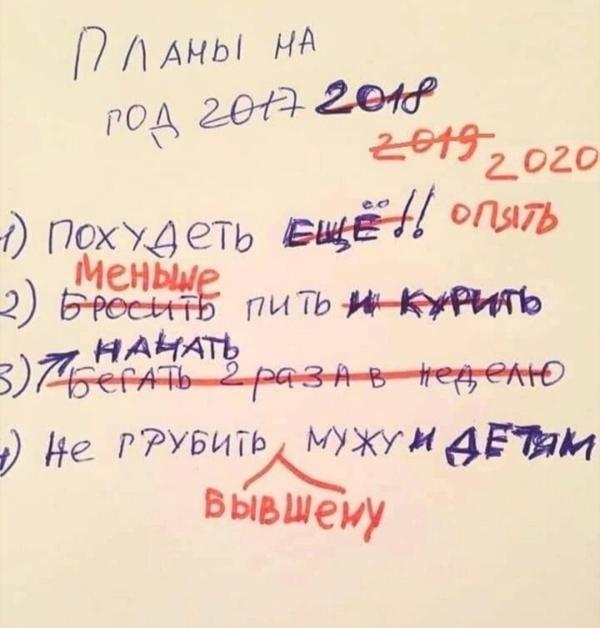 Планы на
год 2017 2018
2019 2020
1) похудеть ЕЩЁ!! опять
меньше
2) Бросить пить и курить
НАЧАТЬ
3) Бегать 2 раза в неделю
4) не грубить мужу и детям
бывшему